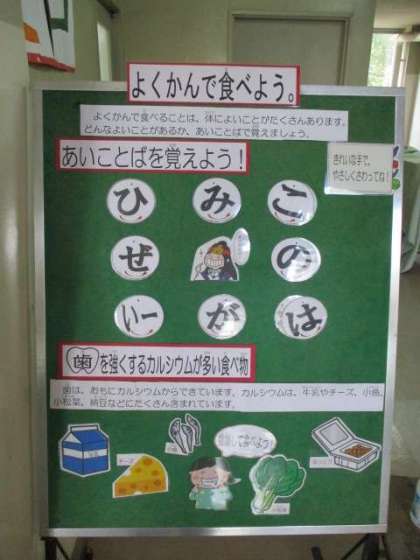 よくかんで食べよう。
よくかんで食べることは、体によいことがたくさんあります。
どんなよいことがあるか、あいことばで覚えましょう。
あいことばを覚えよう！
きれいな手で、
やさしくさわってね！
ひ み こ
ぜ の
いー が は
歯を強くするカルシウムが多い食べ物
歯は、おもにカルシウムからできています。カルシウムは、牛乳やチーズ、小魚、
小松菜、納豆などにたくさん含まれています。
意識して食べよう！
チーズ